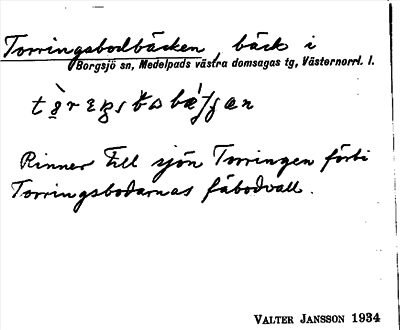 Torringsbodbäcken, bäck i
Borgsjö sn, Medelpads västra domsagas tg, Västernorrl. l.
Rinner till sjön Torringen förbi
Torringsbodarnas fäbodvall.
VALTER JANSSON 1934